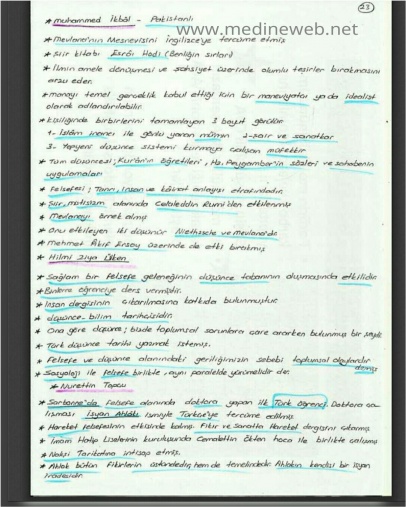 23
www.medineweb.net
* Muhammed İkbâl - Pakistanlı
* Mevlana'nın Mesnevisini İngilizce'ye tercüme etmiş
* Şiir kitabı Esrârı Hodi (Benliğin sırları)
* İlmin amele dönüşmesi ve şahsiyet üzerinde olumlu tesirler bırakmasını
arzu eder.
* manayı temel gerçeklik kabul ettiği için bir maneviyatçı ya da idealist
olarak adlandırılabilir.
* Kişiliğinde birbirlerini tamamlayan 3 boyut görülür
1- İslâm inancı ile yoğrulan mümin 2- şair ve sanatkar
3- Yepyeni düşünce sistemi kurmaya çalışan mütefekkir
* Tüm düşüncesi; Kur'ân'ın öğretileri, Hz. Peygamber'in sözleri ve sahabenin
uygulamaları
* Felsefesi; Tanrı, insan ve kâinat anlayışı etrafındadır.
* Şiir, mistisizm alanında Celaleddin Rumi'den etkilenmiş
* Mevlanayı örnek almış
* Onu etkileyen iki düşünür Niethzsche ve mevlana'dır
* Mehmet Âkif Ersoy üzerinde de etki bırakmış
* Hilmi Ziya Ülken
* Sağlam bir felsefe geleneğinin düşünce tabanının oluşmasında etkilidir.
* Binlerce öğrenciye ders vermiştir.
* İnsan dergisinin çıkarılmasına katkıda bulunmuştur
* düşünce-bilim tarihçisidir.
* Ona göre düşünce; bizde toplumsal sorunlara çare ararken bulunmuş bir şeydir.
* Türk düşünce tarihi yazmak istemiş.
* Felsefe ve düşünce alanındaki geriliğimizin sebebi toplumsal olaylardır
demiş
* Sosyoloji ile felsefe birlikte, aynı paralelde yürümelidir der.
* Nurettin Topçu
* Sorbonne'da felsefe alanında doktora yapan ilk Türk öğrenci. Doktora ça-
lışması İsyan Ahlâkı ismiyle Türkçe'ye tercüme edilmiş.
* Hareket felsefesinin etkisinde kalmış. Fikir ve Sanatta Hareket dergisini çıkarmış
* İmam Hatip Liselerinin kuruluşunda Celalettin Ökten hoca ile birlikte çalışmış
* Nakşi Tarikatına intisap etmiş.
* Ahlak bütün fikirlerin üstündedir, hem de temelindedir. Ahlakın kendisi bir isyan
iradesidir.